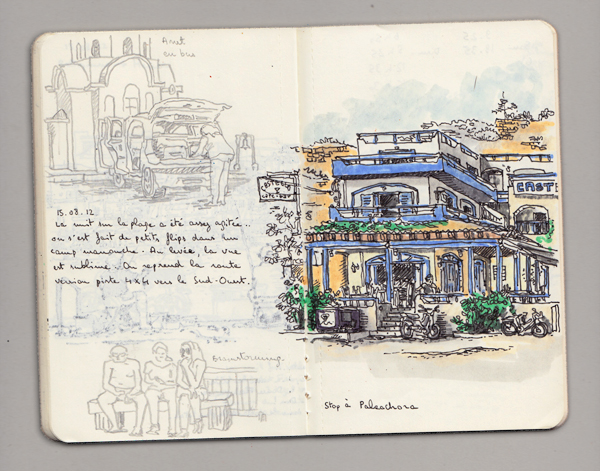 15.08.12
La nuit sur la plage a été assez agitée..
on s'est fait de petits flips dans un
camp manouche. Au levée, la vue
est sublime.. On reprend la route
version piste 4x4 vers le Sud-Ouest.
Brainstorming.
CAST
Stop à Paleochora